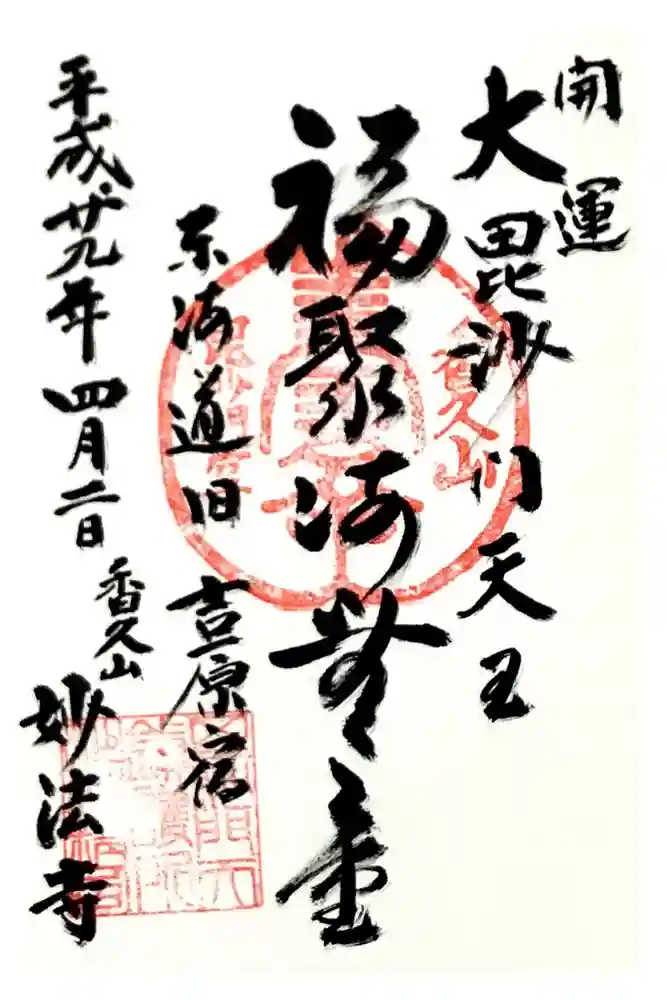 開運
大毘沙門天王
福聚海無量
東海道旧
吉原宿
平成廿九年四月二日
香久山
妙法寺
香久山